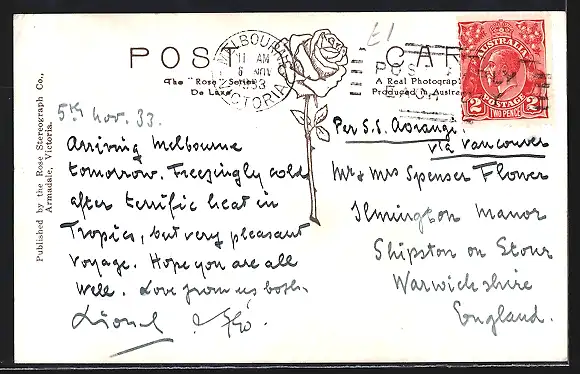 POST CARD
The "Rose" Series
De Luxe
A Real Photograph
Produced in Austra
Published by the Rose Stereograph Co.,
Armadale, Victoria.
£1
MELBOURNE
11 AM
6 NOV
1933
VICTORIA
POS
AUSTRALIA
POSTAGE
2 2
TWO PENCE
5th Nov. 33.
Arriving Melbourne
tomorrow. Freezingly cold
after terrific heat in
Tropics, but very pleasant
voyage. Hope you are all
well. Love from us both.
Lionel & Flo.
Per S.S. Aorangi.
via Vancouver
Mr & Mrs Spenser Flower
Ilmington Manor
Shipston on Stour
Warwickshire
England.